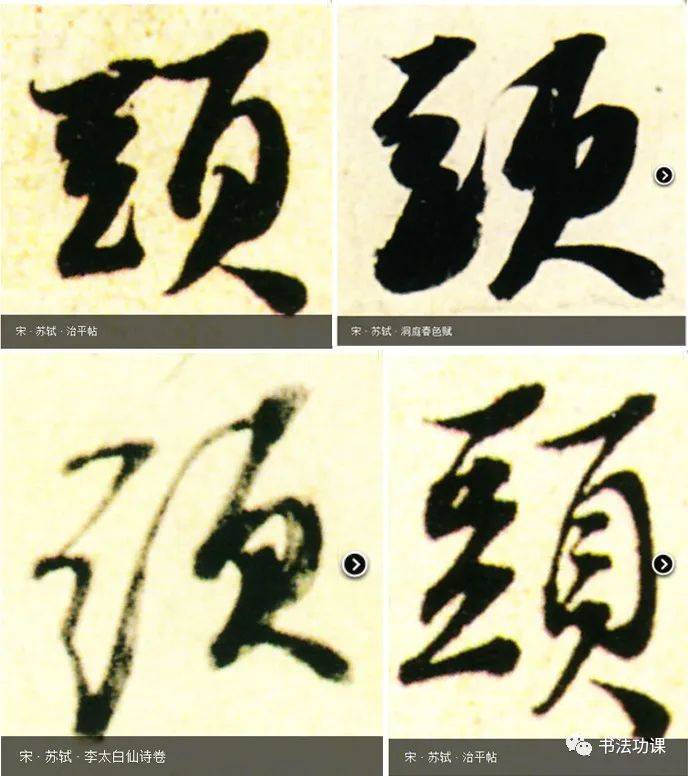 頭
宋·苏轼·治平帖
頭
宋·苏轼·洞庭春色赋
頭
宋·苏轼·李太白仙诗卷
頭
宋·苏轼·治平帖
书法功课